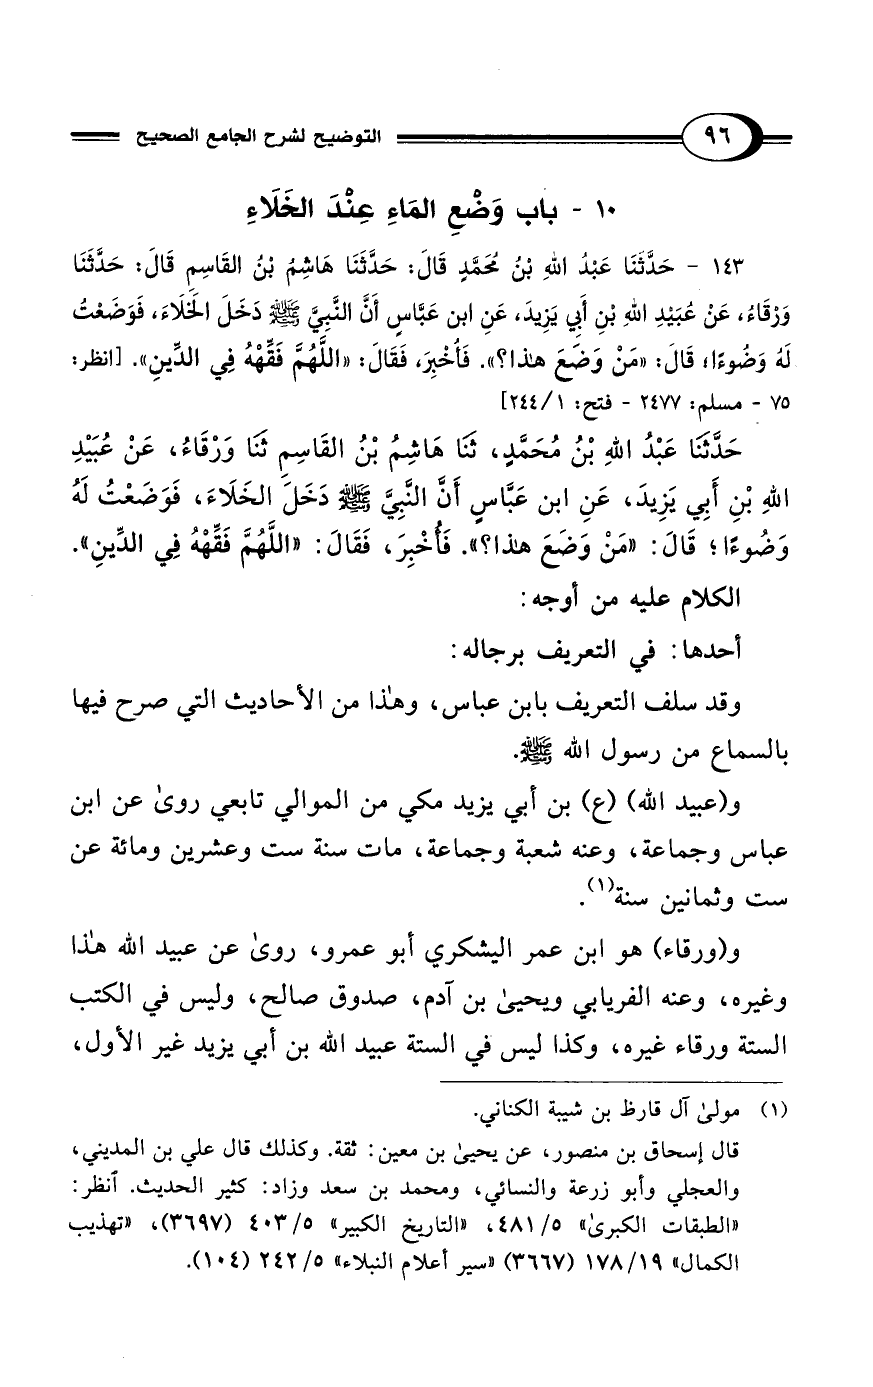 ٩٦ التوضيح لشرح الجامع الصحيح
١٠ - باب وَضْعِ المَاءِ عِنْدَ الخَلَاءِ
١٤٣ - حَدَّثَنَا عَبْدُ اللهِ بْنُ مُحَمَّدٍ قَالَ: حَدَّثَنَا هَاشِمُ بْنُ القَاسِمِ قَالَ: حَدَّثَنَا
وَرْقَاءُ، عَنْ عُبَيْدِ اللهِ بْنِ أَبِي يَزِيدَ، عَنِ ابن عَبَّاسٍ أَنَّ النَّبِيَّ ﷺ دَخَلَ الخَلَاءَ، فَوَضَعْتُ
لَهُ وَضُوءًا؛ قَالَ: «مَنْ وَضَعَ هٰذا؟». فَأُخْبِرَ، فَقَالَ: «اللَّهُمَّ فَقِّهْهُ فِي الدِّينِ». [انظر:
٧٥ - مسلم: ٢٤٧٧ - فتح: ١/ ٢٤٤]
حَدَّثَنَا عَبْدُ اللهِ بْنُ مُحَمَّدٍ، ثَنَا هَاشِمُ بْنُ القَاسِمِ ثَنَا وَرْقَاءُ، عَنْ عُبَيْدِ
اللهِ بْنِ أَبِي يَزِيدَ، عَنِ ابن عَبَّاسٍ أَنَّ النَّبِيَّ ﷺ دَخَلَ الخَلَاءَ، فَوَضَعْتُ لَهُ
وَضُوءًا؛ قَالَ: «مَنْ وَضَعَ هٰذا؟». فَأُخْبِرَ، فَقَالَ: «اللَّهُمَّ فَقِّهْهُ فِي الدِّينِ».
الكلام عليه من أوجه:
أحدها: في التعريف برجاله:
وقد سلف التعريف بابن عباس، وهٰذا من الأحاديث التي صرح فيها
بالسماع من رسول الله ﷺ.
و(عبيد الله) (ع) بن أبي يزيد مكي من الموالي تابعي روىٰ عن ابن
عباس وجماعة، وعنه شعبة وجماعة، مات سنة ست وعشرين ومائة عن
ست وثمانين سنة(١).
و(ورقاء) هو ابن عمر اليشكري أبو عمرو، روىٰ عن عبيد الله هٰذا
وغيره، وعنه الفريابي ويحيىٰ بن آدم، صدوق صالح، وليس في الكتب
الستة ورقاء غيره، وكذا ليس في الستة عبيد الله بن أبي يزيد غير الأول،
(١) مولىٰ آل قارظ بن شيبة الكناني.
قال إسحاق بن منصور، عن يحيىٰ بن معين: ثقة. وكذلك قال علي بن المديني،
والعجلي وأبو زرعة والنسائي، ومحمد بن سعد وزاد: كثير الحديث. ٱنظر:
«الطبقات الكبرىٰ» ٥/ ٤٨١، «التاريخ الكبير» ٥/ ٤٠٣ (٣٦٩٧)، «تهذيب
الكمال» ١٩/ ١٧٨ (٣٦٦٧) «سير أعلام النبلاء» ٥/ ٢٤٢ (١٠٤).